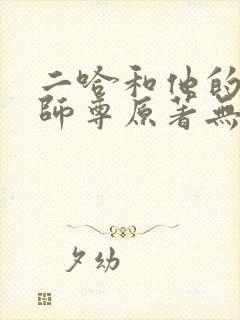 二哈和他的
師尊原著無
夕幼